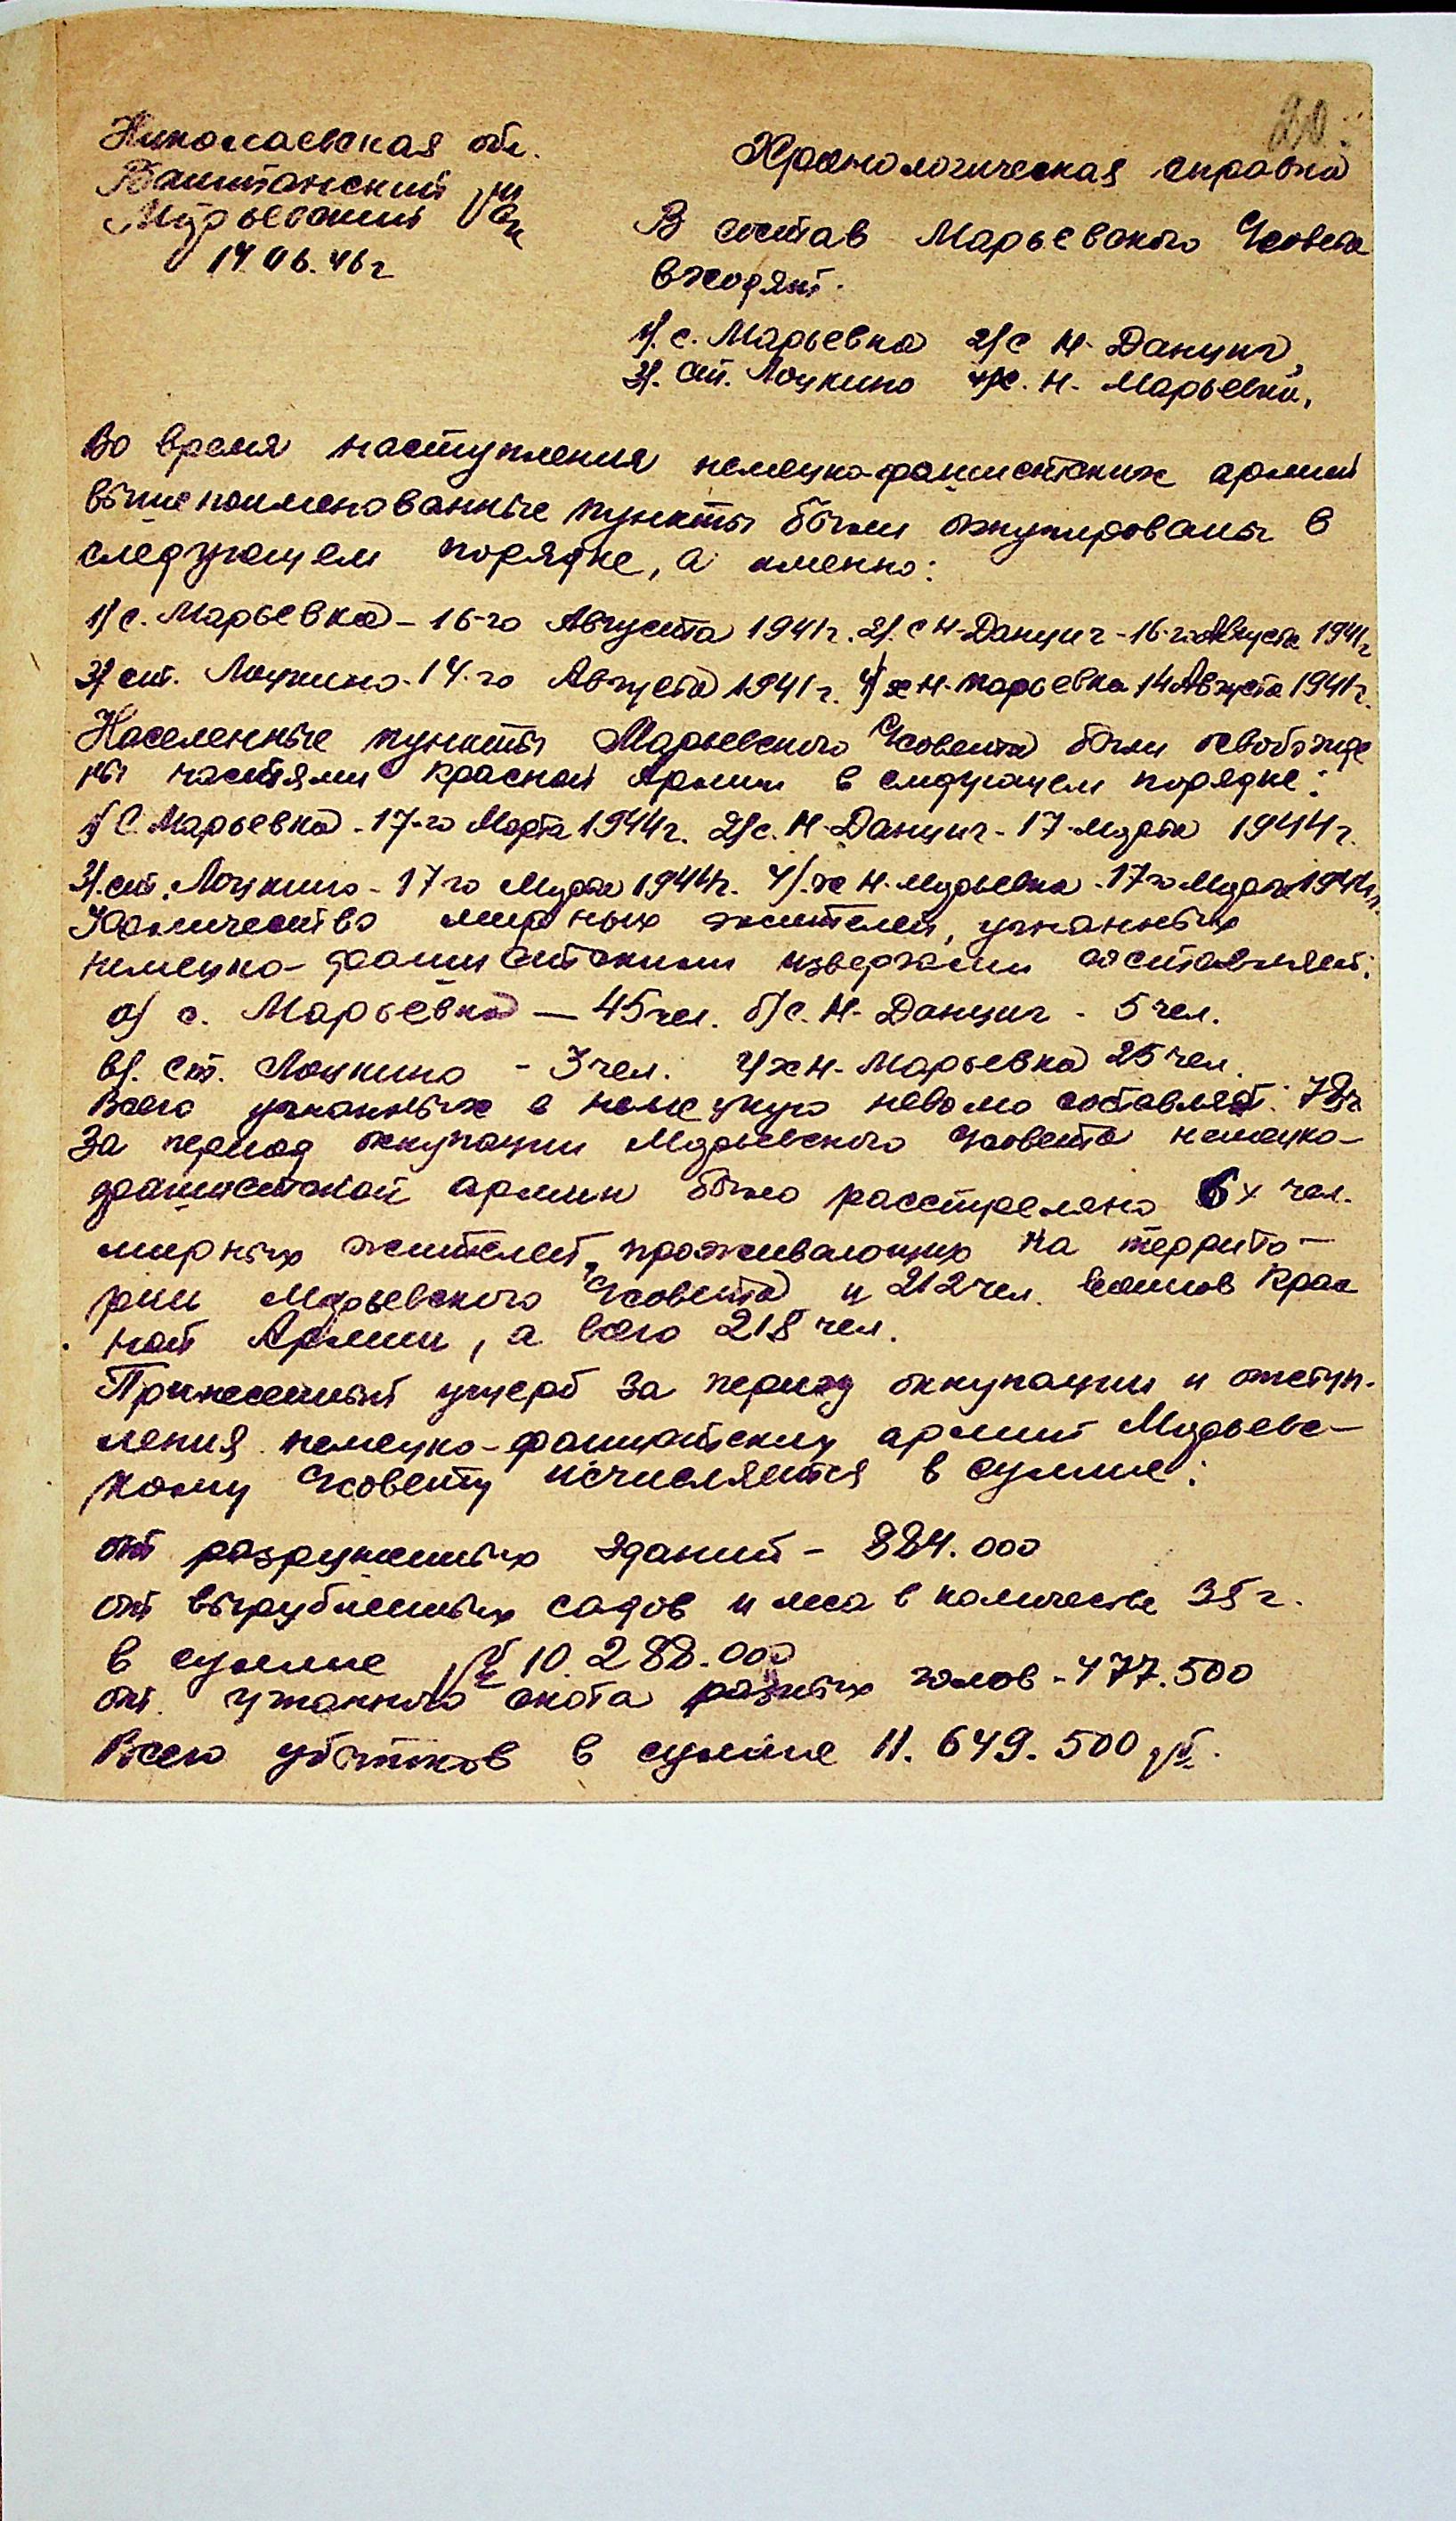 20.
Николаевская обл.
Баштанский р-н
Марьевский с/с
14.06.46 г
Хронологическая справка
В состав Марьевского с/совета
входят.
1/. с. Марьевка 2/с Н-Данциг,
3/. ст. Лоцкино 4/х. Н-Марьевка.
Во время наступления немецко-фашистских армий
вышепоименованные пункты были оккупированы в
следующем порядке, а именно:
1/ с. Марьевка - 16-го Августа 1941 г. 2/. с Н-Данциг - 16-го Августа 1941 г
3/ ст. Лоцкино - 14-го Августа 1941 г. 4/ х Н-Марьевка 14 Августа 1941 г.
Населенные пункты Марьевского с/совета были освобожде
ны частями Красной Армии в следующем порядке:
1/ с. Марьевка - 17-го Марта 1944 г. 2/с. Н-Данциг - 17-марта 1944 г.
3/. ст. Лоцкино - 17го Марта 1944 г. 4/. х Н-Марьевка - 17го Марта 1944 г.
Количество мирных жителей, угнанных
немецко-фашистскими извергами составляет:
а/ с. Марьевка — 45 чел. б/с. Н-Данциг - 5 чел.
в/. ст. Лоцкино - 3 чел. г/ х Н-Марьевка 25 чел.
Всего угнанных в немецкую неволю составляет: 78 ч
За период оккупации Марьевского с/совета немецко-
фашистской армии было расстреляно 6х чел.
мирных жителей, проживающих на террито-
рии Марьевского с/совета и 212 чел. воинов Крас
ной Армии, а всего 218 чел.
Принесенный ущерб за период оккупации и отступ-
ления немецко-фашистских армий Марьевс-
кому с/совету исчисляется в сумме:
от разрушенных зданий - 884.000
от вырубленных садов и леса в количестве 35 г.
в сумме руб 10.288.000
от угнанного скота разных голов - 477.500
Всего убытков в сумме 11.649.500 руб.